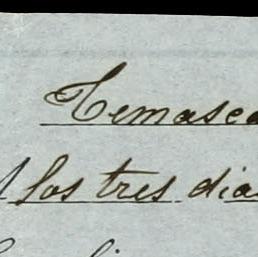 Temasca
los tres dia